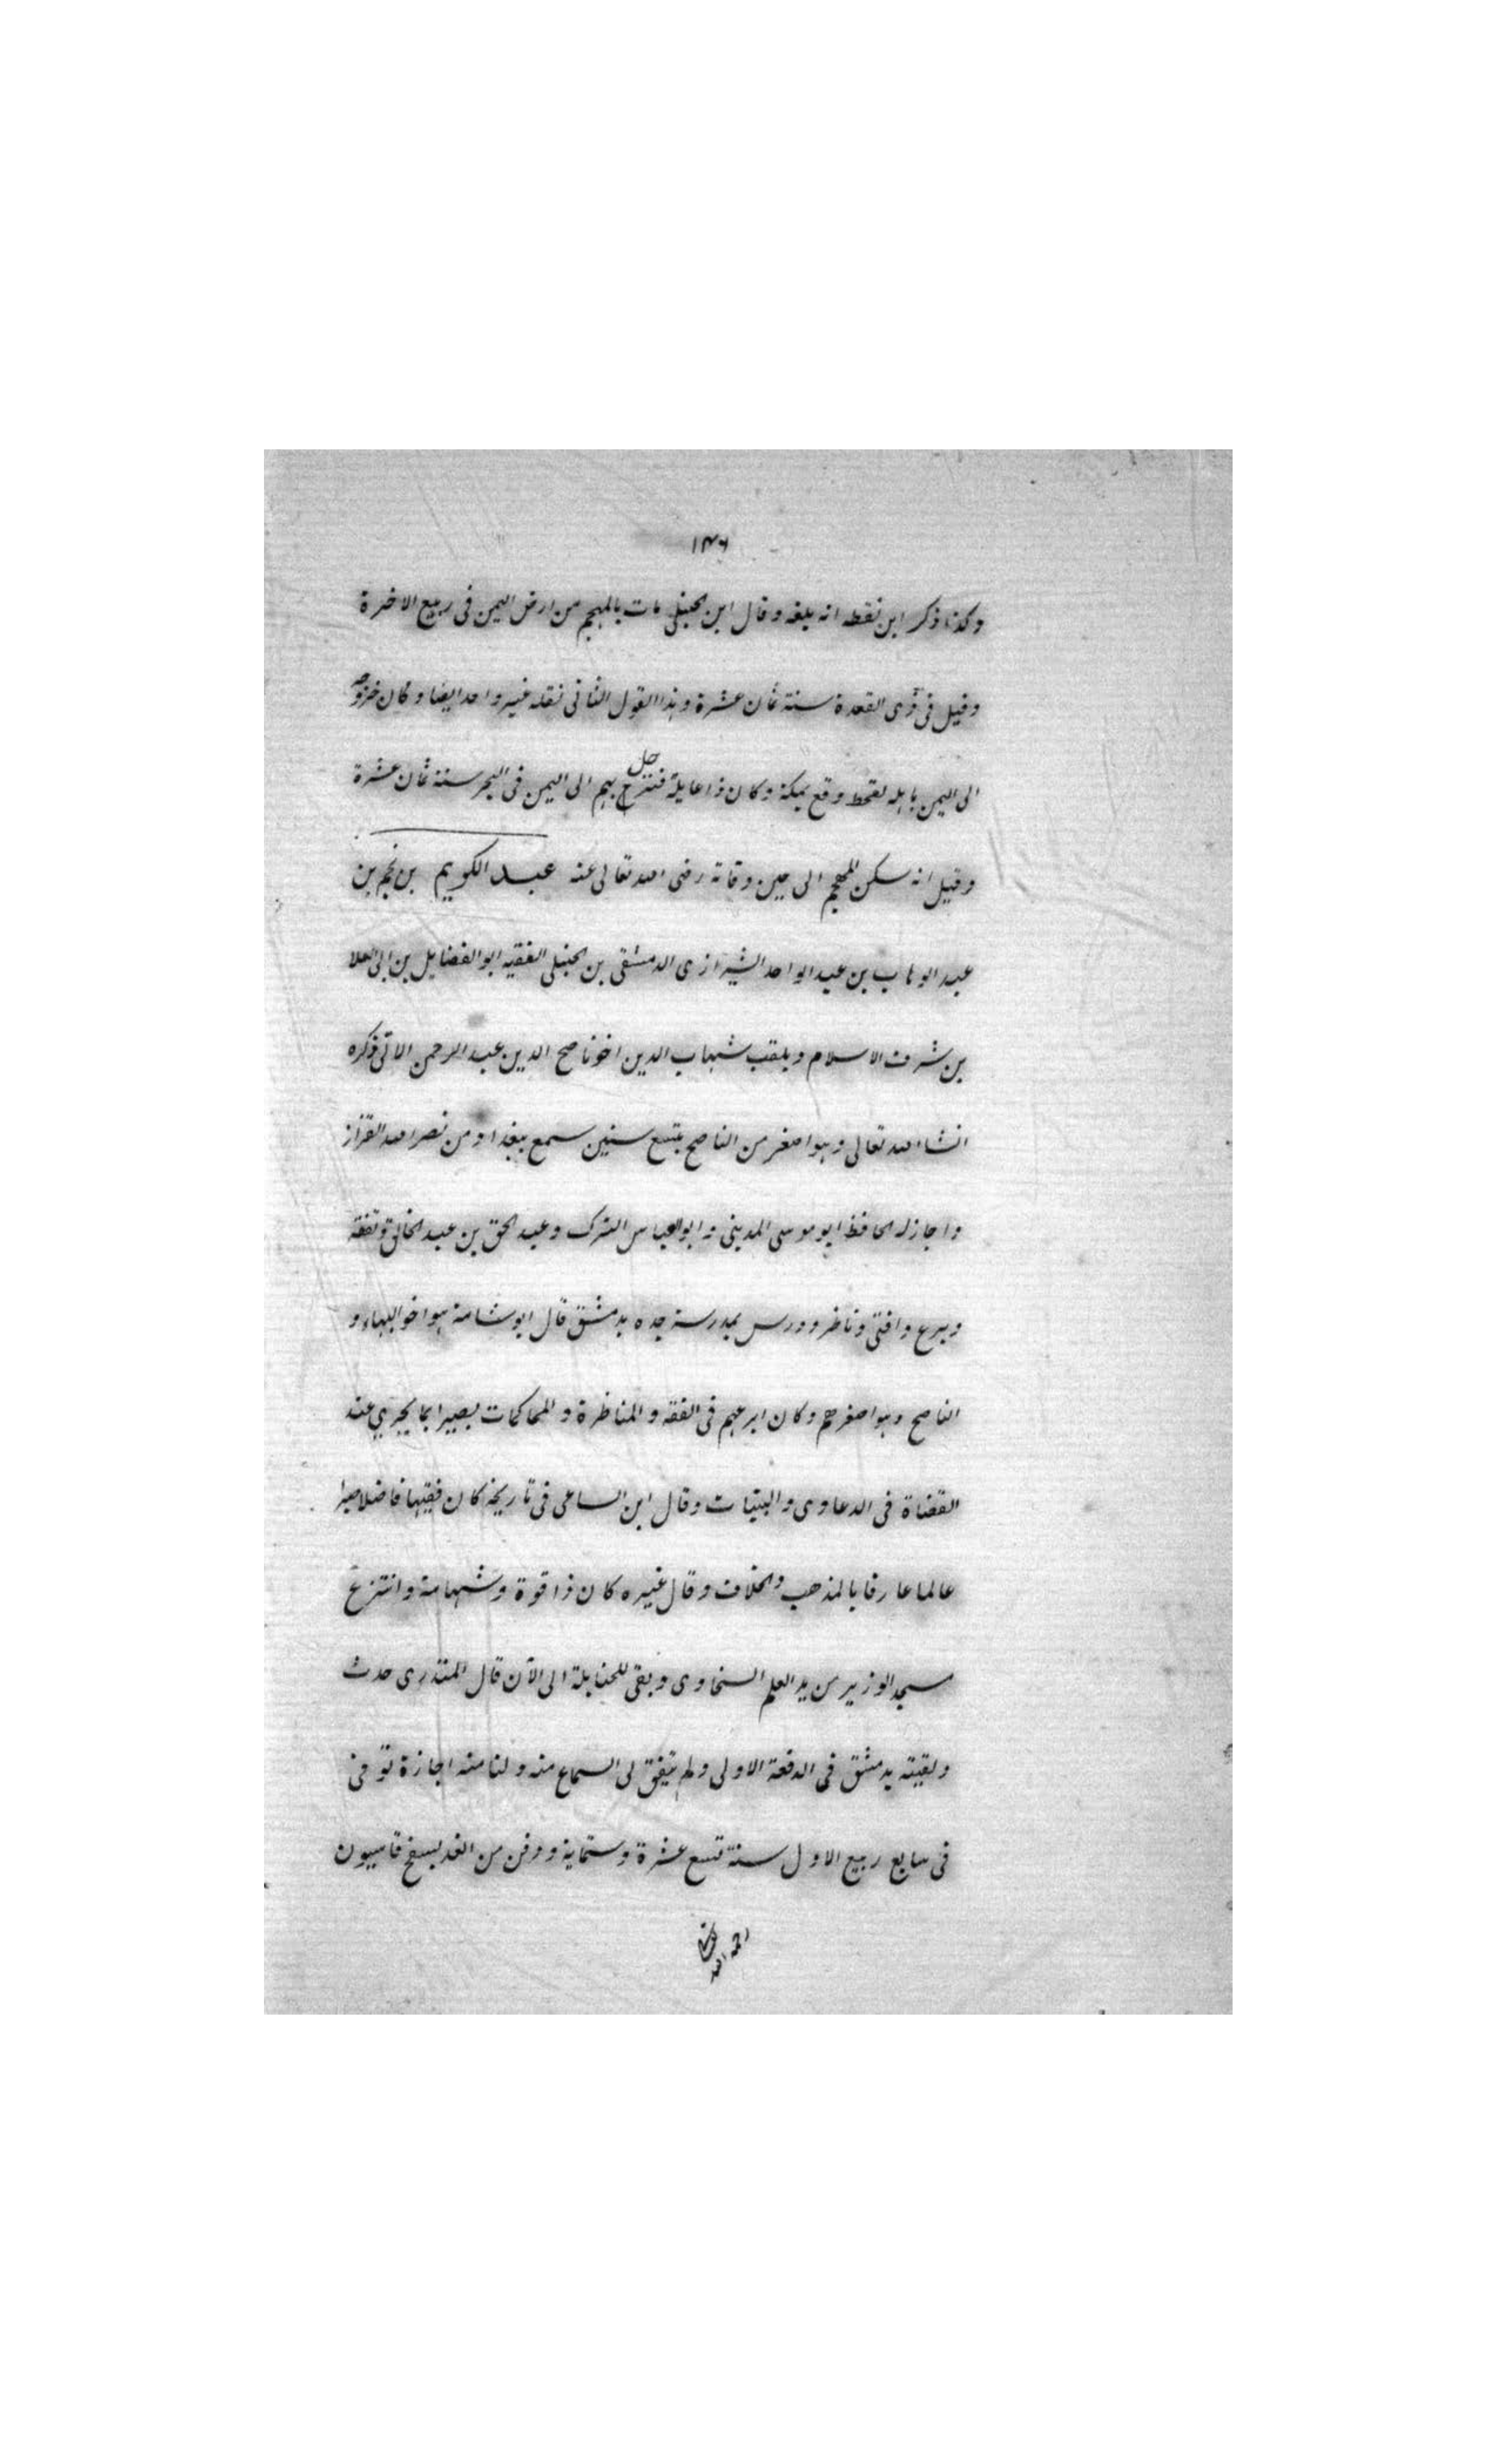 ١٣٦
وكذا ذكر ابن نقطه انه بلغه وقال ابن الحنبلى مات بالمهجم من ارض اليمن فى ربيع الاخرة
وقيل فى ذى القعدة سنة ثمان عشرة وهذا القول الثانى نقله غير واحد ايضا وكان خروجه
الى اليمن باهله لقحط وقع بمكة وكان ذا عايلة فنزح بهم الى اليمن فى البحر سنة ثمان عشرة
وقيل انه سكن المهجم الى حين وفاته رضى الله تعالى عنه عبد الكريم بن نجم بن
عبد الوهاب بن عبد الواحد الشيرازى الدمشقى بن الحنبلى الفقيه ابو الفضايل بن ابى العلا
بن شرف الاسلام ويلقب شهاب الدين اخو ناصح الدين عبد الرحمن الاتى ذكره
انشاء الله تعالى وهو اصغر من الناصح بتسع سنين سمع ببغداد من نصر الله القزاز
واجاز له الحافظ ابو موسى المدينى وابو العباس الترك وعبد الحق بن عبد الخالق وتفقه
وبرع وافتى وناظر ودرس بمدرسة جده بدمشق قال ابو شامة هو اخو البهاء و
الناصح وهو اصغرهم وكان ابرعهم فى الفقه والمناظرة والمحاكمات بصيرا بما يجرى عند
القضاة فى الدعاوى والبينات وقال ابن الساعى فى تاريخه كان فقيها فاضلا
عالما عارفا بالمذهب والخلاف وقال غيره كان ذا قوة وشهامة وانتزع
مسجد الوزير من يد العلم السخاوى وبقى للحنابلة الى الآن قال المنذرى حدث
ولقيته بدمشق فى الدفعة الاولى ولم يتفق لى السماع منه ولنا منه اجازة توفى
فى سابع ربيع الاول سنة تسع عشرة وستماية ودفن من الغد بسفح قاسيون
رحمه الله